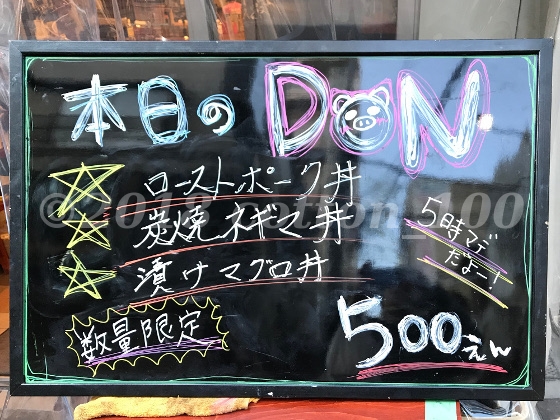 本日のDON
ローストポーク丼
炭焼ネギマ丼
漬けマグロ丼
5時マデ
だよー!
数量限定
500えん
© 2018 cotton_100